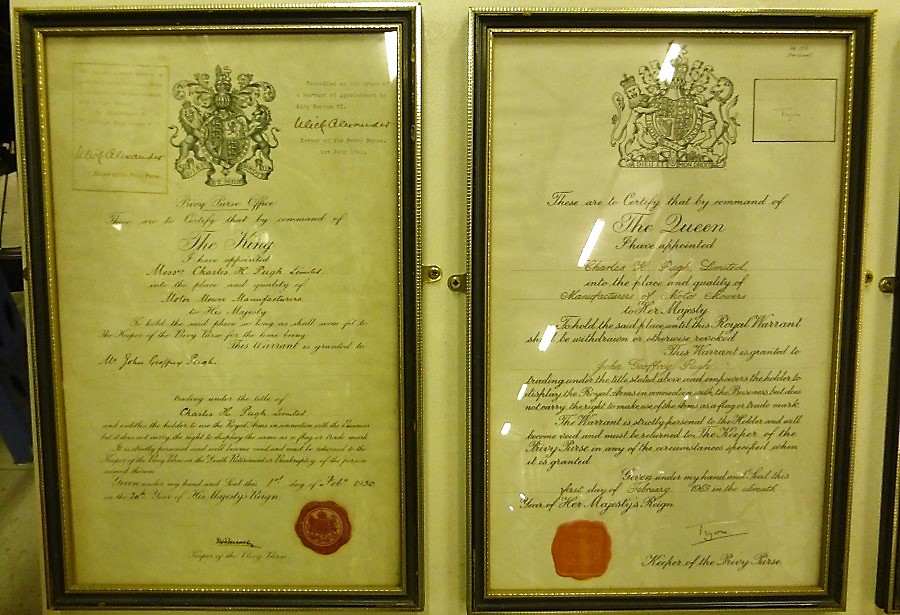 Cancelled on the grant of
a Warrant of Appointment to
King George VI.
Ulick Alexander
Keeper of the Privy Purse.
1st July 1940.
Ulick Alexander
Keeper of the Privy Purse.
ET MON
Privy Purse Office
These are to Certify that by command of
The King
I have appointed
Messrs Charles H. Pugh Limited
into the place and quality of
Motor Mower Manufacturers
to His Majesty
To hold the said place so long as shall seem fit to
The Keeper of the Privy Purse for the time being
This Warrant is granted to
Mr John Geoffrey Pugh.
trading under the title of
Charles H. Pugh Limited
and entitles the holder to use the Royal Arms in connection with the Business
but it does not carry the right to display the same as a flag or trade mark
It is strictly personal and will become void and must be returned to the
Keeper of the Privy Purse in the Death Retirement or Bankruptcy of the person
named therein
Given under my hand and Seal this 1st day of Feby 1930
in the 20th Year of His Majesty's Reign.
Keeper of the Privy Purse.
Tryon
DIEU ET MON DROIT
These are to Certify that by command of
The Queen
I have appointed
Charles H. Pugh Limited
into the place and quality of
Manufacturers of Motor Mowers
to Her Majesty
To hold the said place until this Royal Warrant
shall be withdrawn or otherwise revoked
This Warrant is granted to
John Geoffrey Pugh
trading under the title stated above and empowers the holder to
display the Royal Arms in connection with the Business but does
not carry the right to make use of the Arms as a flag or trade mark.
The Warrant is strictly personal to the Holder and will
become void and must be returned to The Keeper of the
Privy Purse in any of the circumstances specified when
it is granted.
Given under my hand and Seal this
first day of February 1963 in the eleventh
Year of Her Majesty's Reign
Tryon
Keeper of the Privy Purse